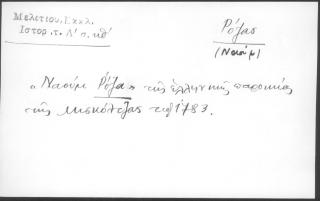 Μελετίου, Εκκλ.
Ιστορ. τ. Δ' σ. κθ'
Ρόζας
(Ναούμ)
« Ναούμ Ρόζα » της ἑλληνικῆς παροικίας
τῆς Μισκόλτζας τῷ 1783.